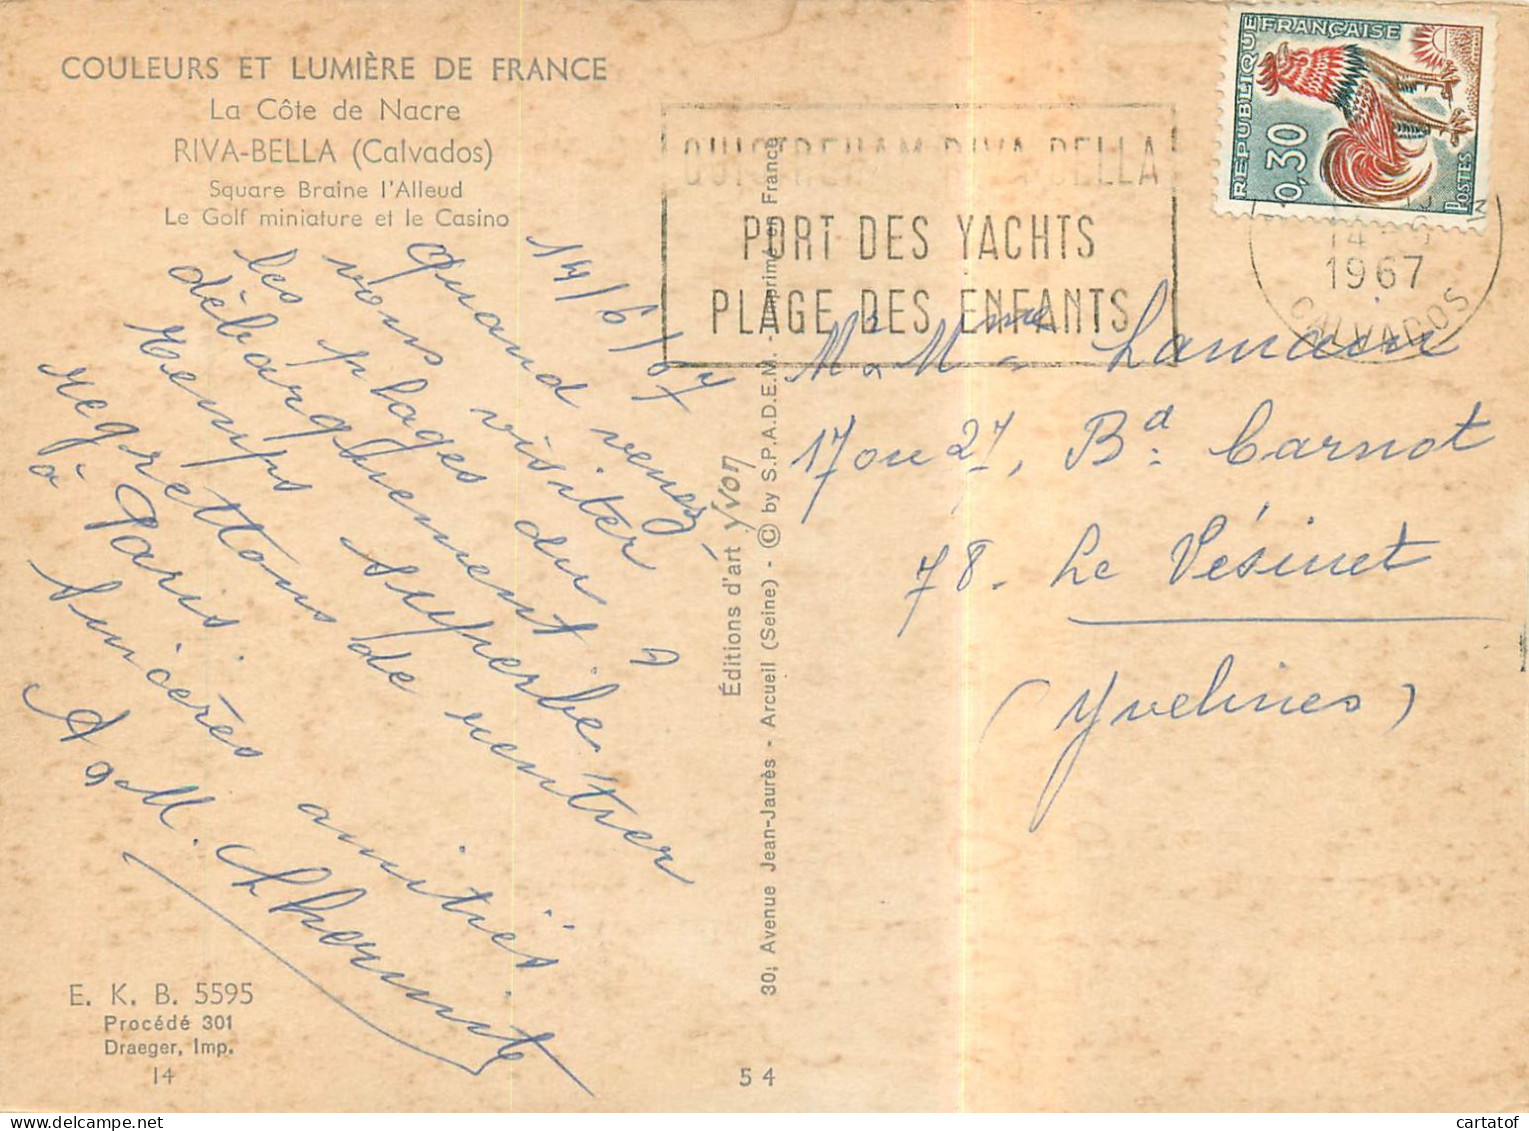 COULEURS ET LUMIÈRE DE FRANCE
La Côte de Nacre
RIVA-BELLA (Calvados)
Square Braine l'Alleud
Le Golf miniature et le Casino
14/6/67
Quand venez
vous visiter
les plages du
débarquement ?
temps superbe
regrettons de rentrer
à Paris.
Sincères amitiés
A & M. Lhermitte
E. K. B. 5595
Procédé 301
Draeger, Imp.
14
54
Éditions d'art Yvon
30, Avenue Jean-Jaurès - Arcueil (Seine) - © by S.P.A.D.E.M. - Imprimé en France
OUISTREHAM RIVA BELLA
PORT DES YACHTS
PLAGE DES ENFANTS
REPUBLIQUE FRANÇAISE
0,30
POSTES
14 - 6
1967
CALVADOS
Mr & Mme
17 ou 27, Bd. Carnot
78. Le Vésinet
(Yvelines)
cartatof